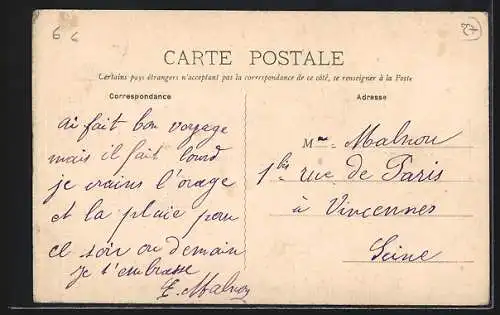 6 c
CARTE POSTALE
Certains pays étrangers n'acceptant pas la correspondance de ce côté, se renseigner à la Poste
Correspondance
Adresse
ai fait bon voyage
mais il fait lourd
je crains l'orage
et la pluie pour
ce soir ou demain
je t'embrasse
E. Malnou
Mme Malnou
1 bis rue de Paris
à Vincennes
Seine